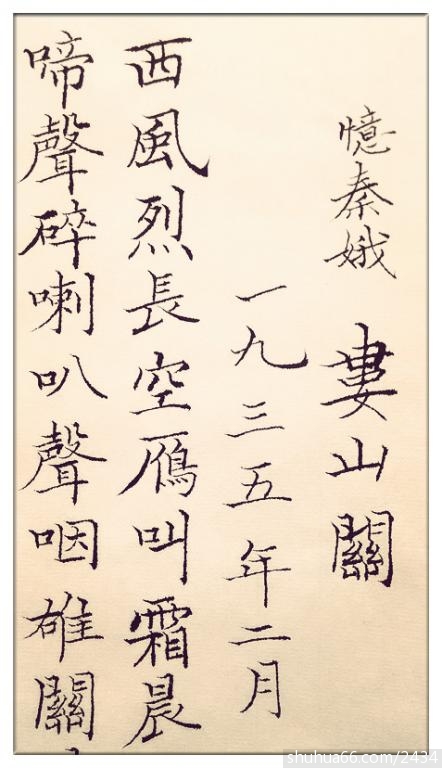 憶秦娥 婁山關
一九三五年二月
西風烈長空鴈叫霜晨
啼聲碎喇叭聲咽雄關
shuhua66.com/2434